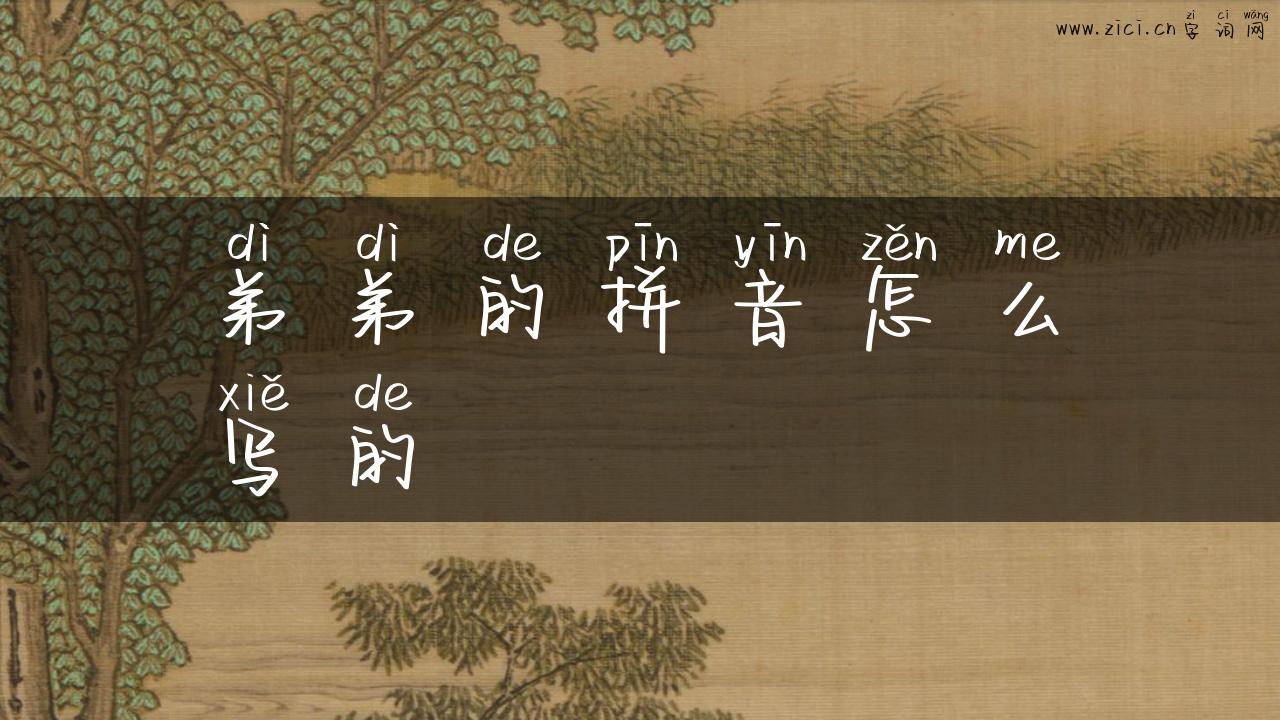 zì cí wǎng
www.zici.cn字词网
dì dì de pīn yīn zěn me
弟弟的拼音怎么
xiě de
写的